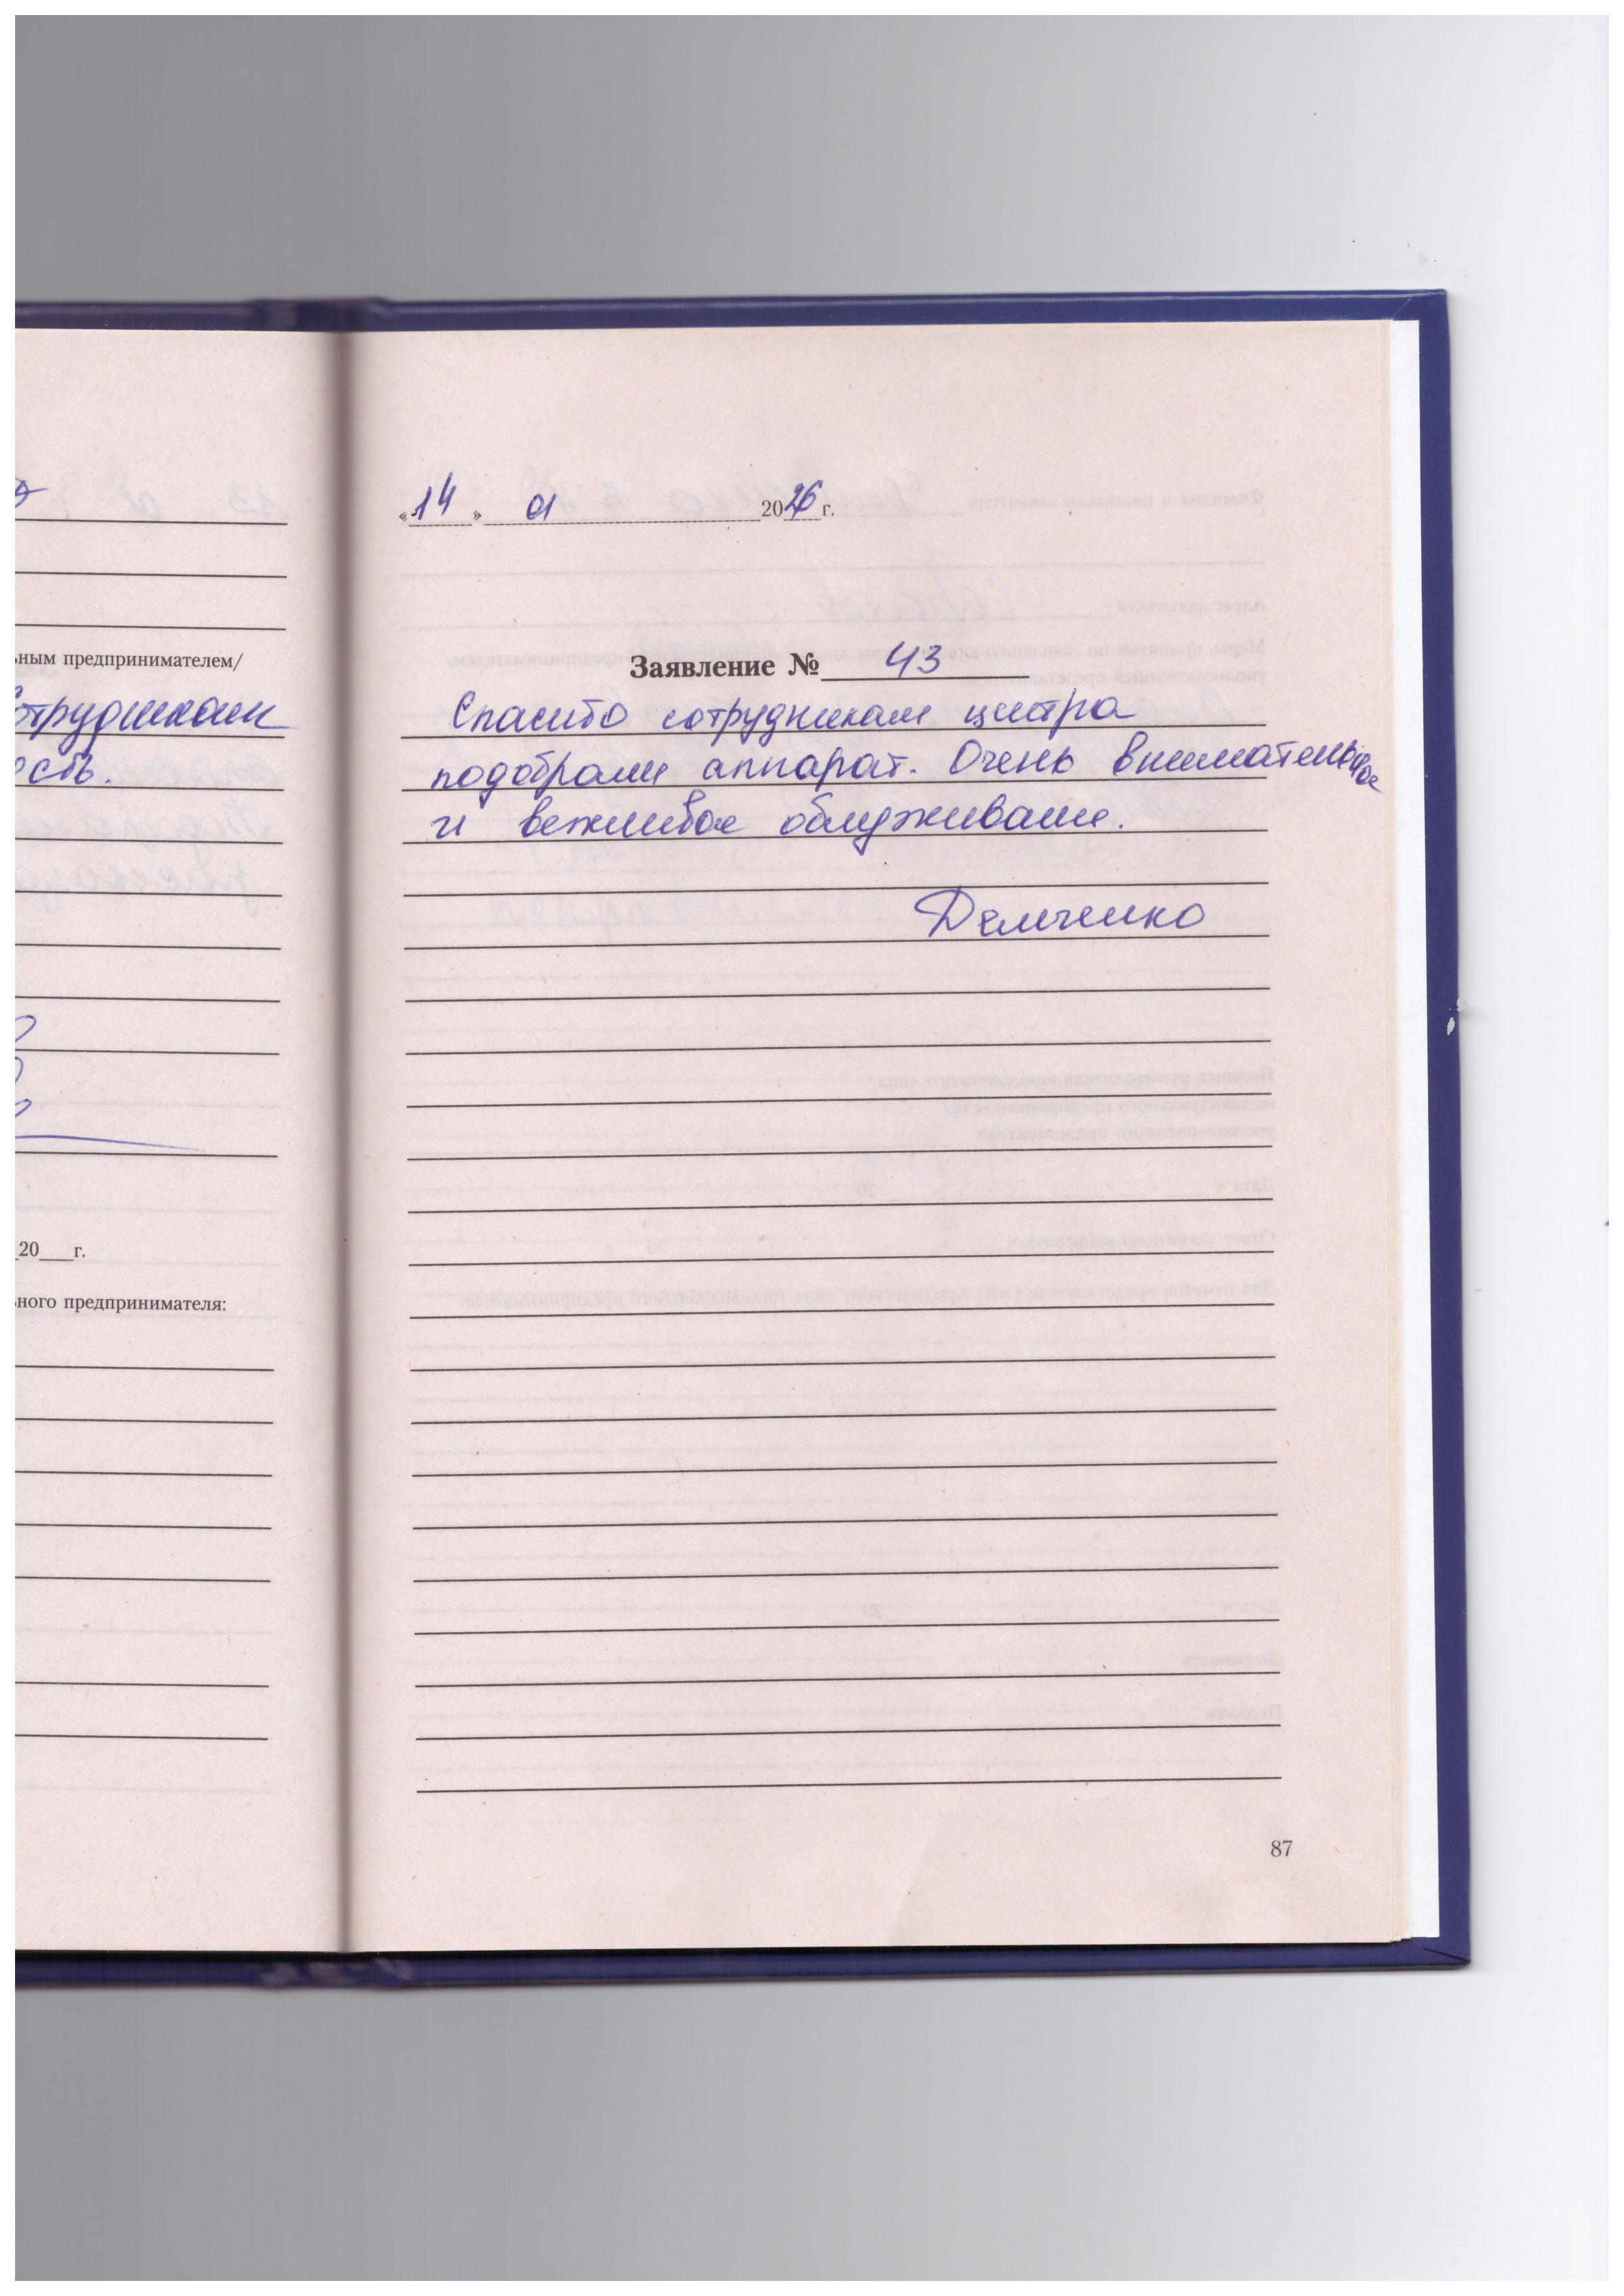 ьным предпринимателем/
сотрудникам
ость.
20___г.
ьного предпринимателя:
«14» 01 2026г.
Заявление № 43
Спасибо сотрудникам центра
подобрали аппарат. Очень внимательное
и вежливое обслуживание.
Демченко
87